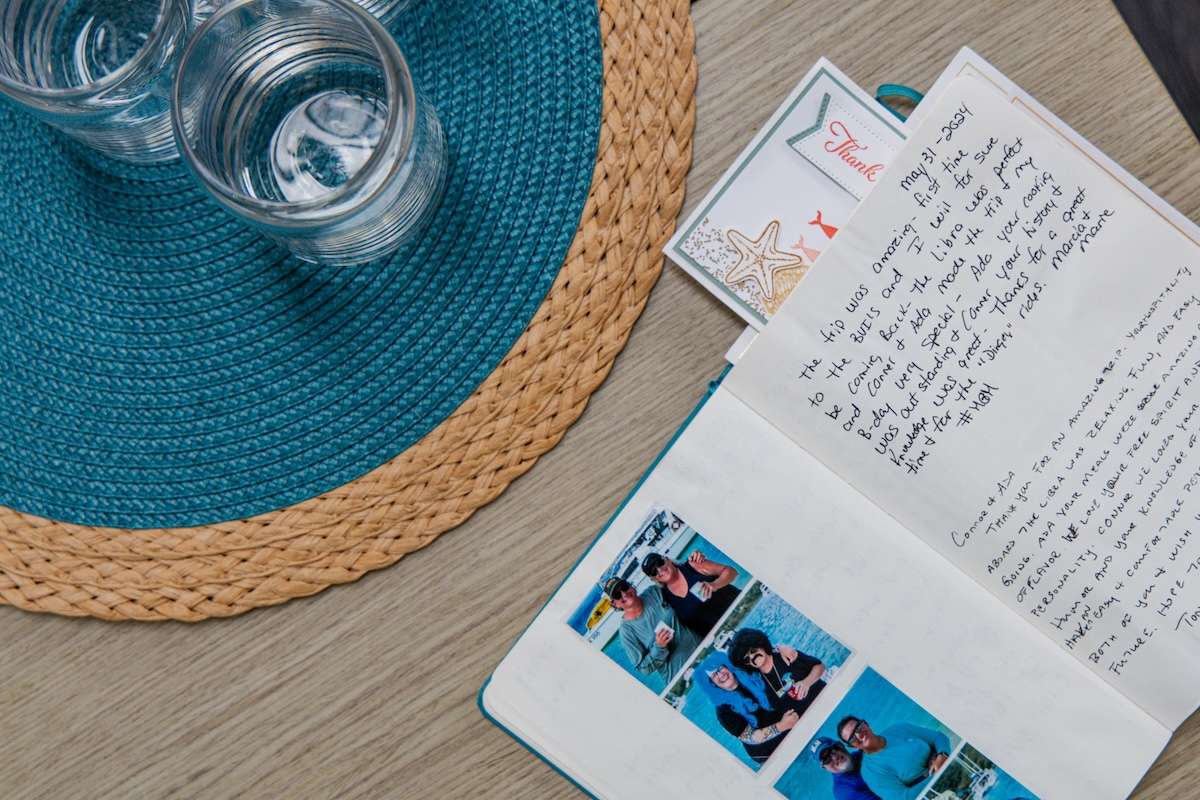 Thank
May 31-2024
The trip was amazing - first time
to the BVI's and I will for sure
be coming Back - The Libra was perfect
and Conner & Ada made the trip & my
B-day very special - Ada your cooking
was outstanding & Conner your history &
Knowledge was great - Thanks for a great
time & for the "Dingey" rides. Marcia &
#MBM Marie
Connor & Ada
Thank you for an amazing trip. Your hospitality
aboard the Libra was relaxing, fun, and easy
going. Ada your meals were amazing
of flavor. We love your free spirit and
personality. Connor we loved your
humor and your knowledge of
have an easy & comfortable
both of you & wish
future. Hope to